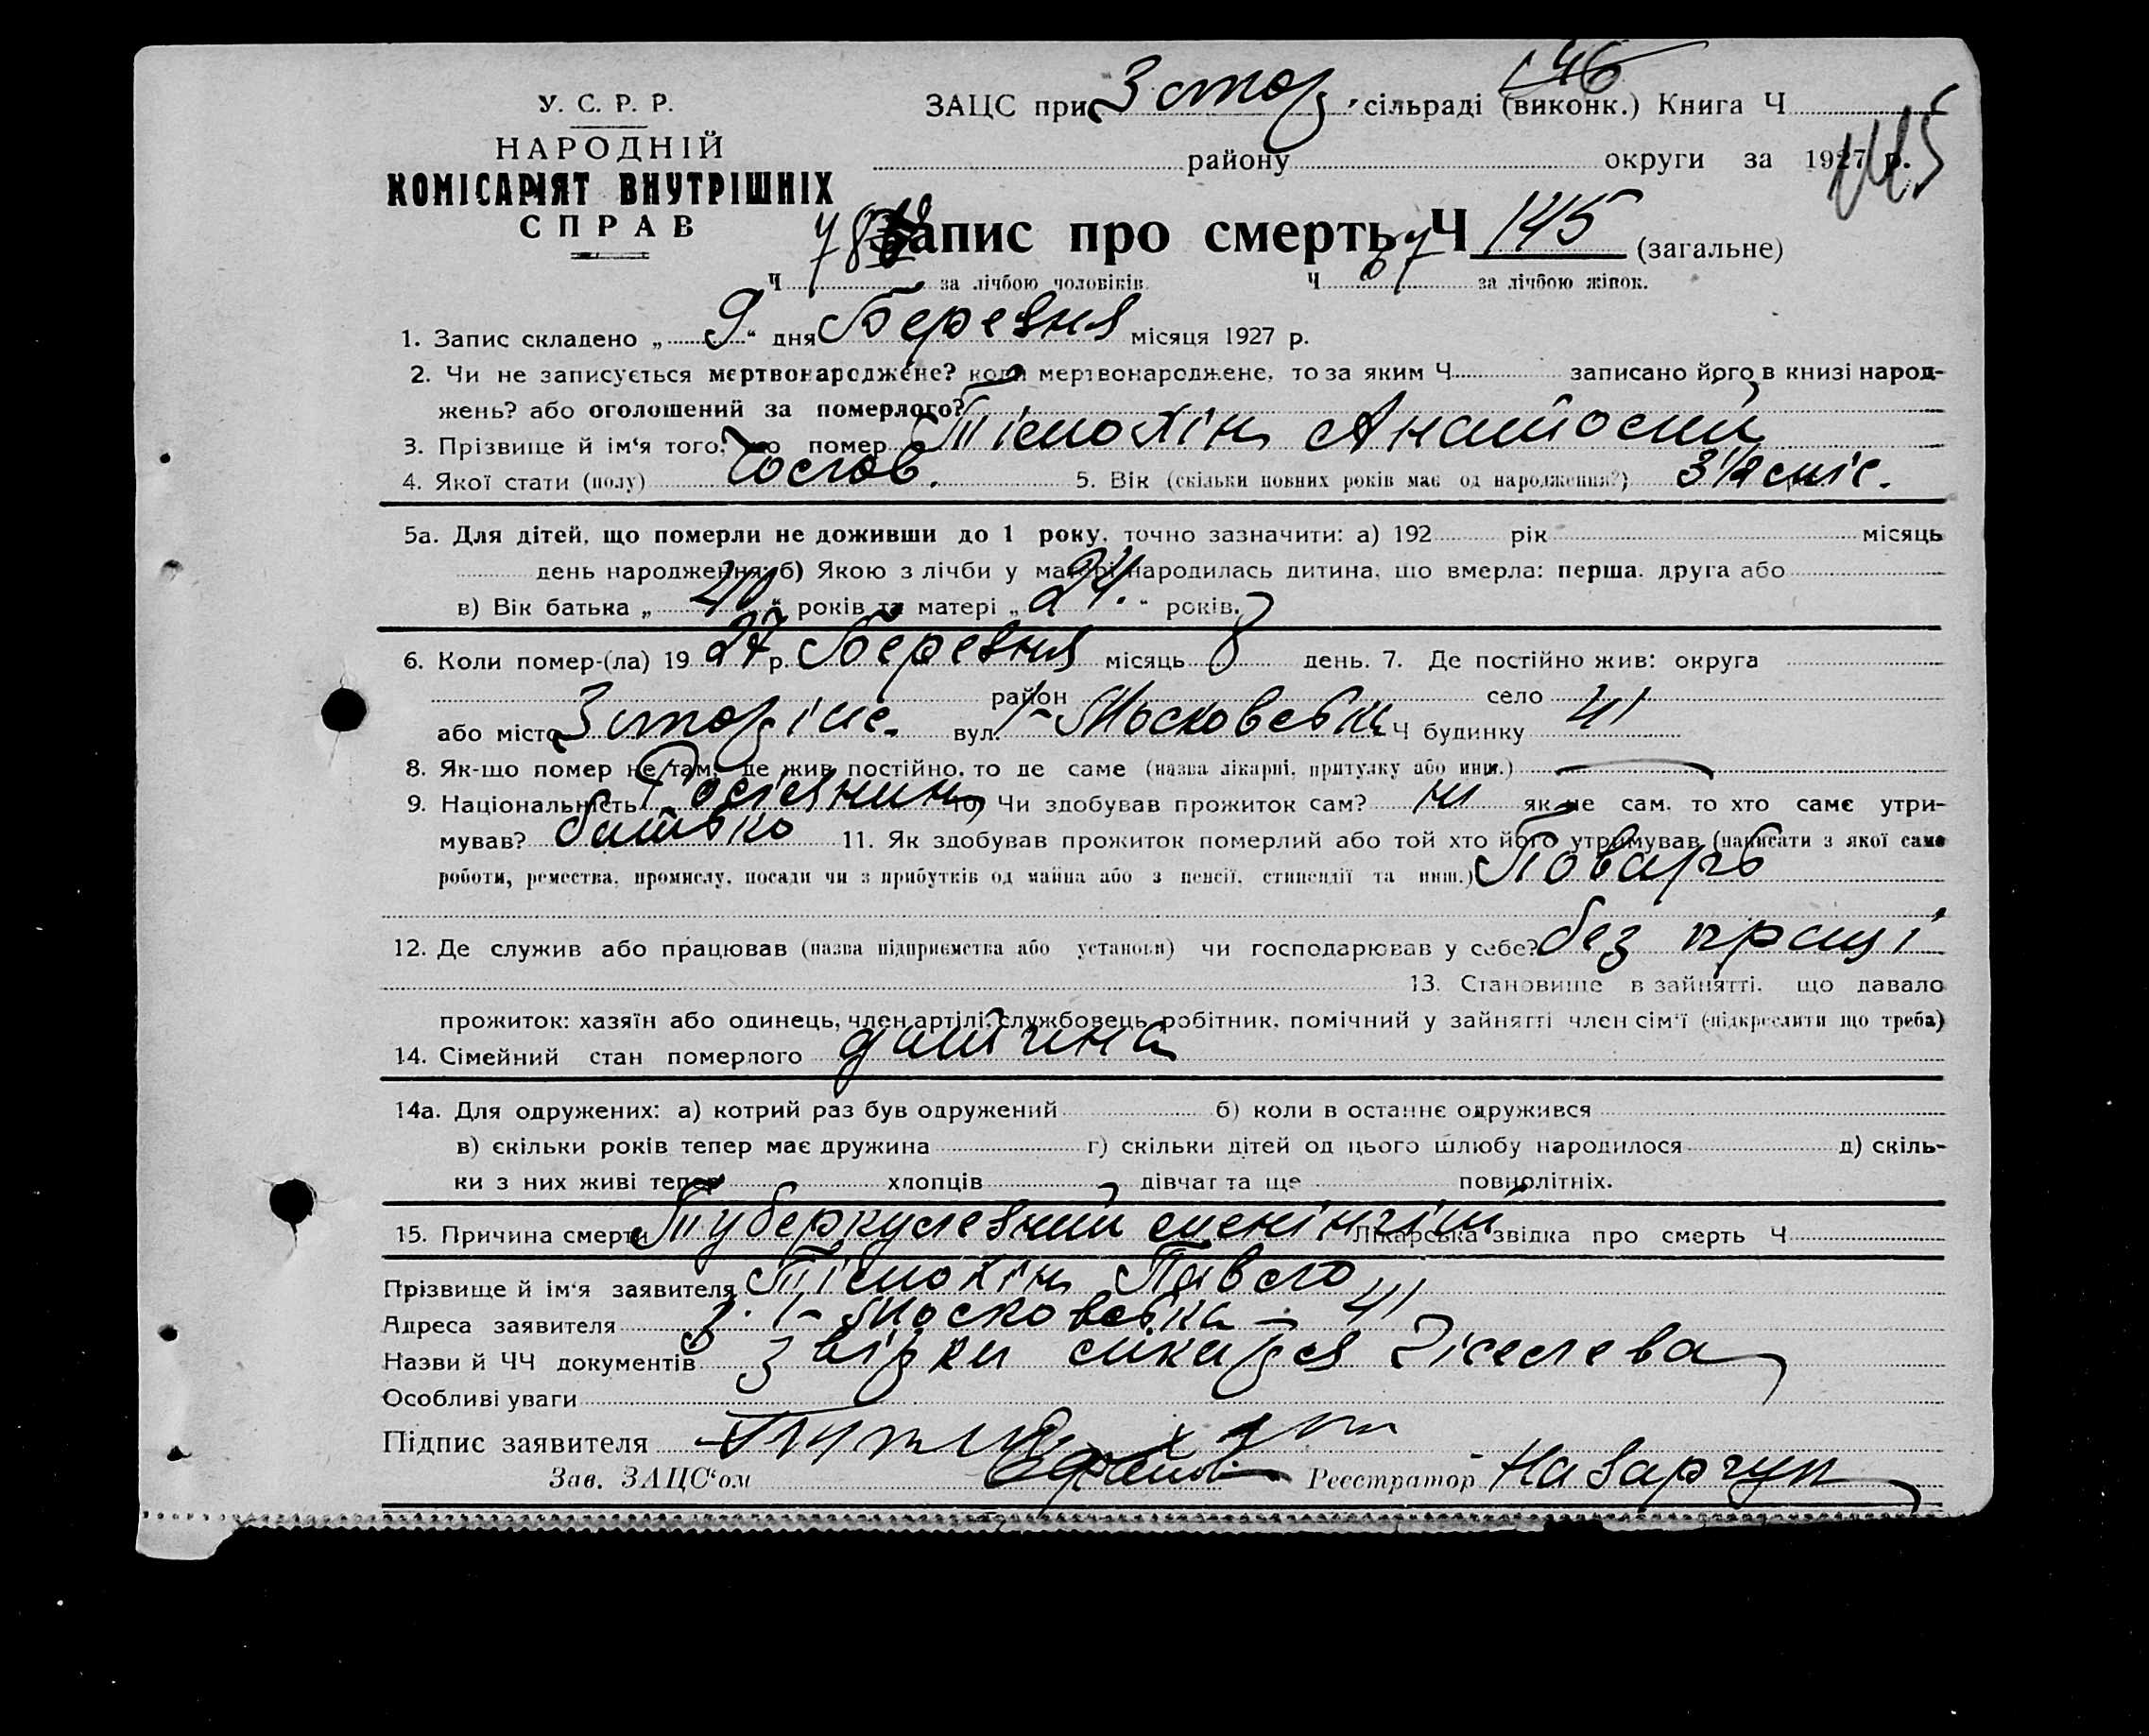 146
У. С. Р. Р.
НАРОДНІЙ
КОМІСАРІЯТ ВНУТРІШНІХ
СПРАВ
ЗАЦС при сільраді (виконк.) Книга Ч
району округи за 1927 р.
145
Запис про смерть Ч 145 (загальне)
Ч 78 за лічбою чоловіків. Ч 67 за лічбою жінок.
1. Запис складено „ 9 “ дня Березня місяця 1927 р.
2. Чи не записується мертвонароджене? коли мертвонароджене, то за яким Ч записано його в книзі народ-
жень? або оголошений за померлого?
3. Прізвище й ім‘я того, що помер Тімохін Анатолій
4. Якої стати (полу) Чолов. 5. Вік (скільки повних років має од народження?) 3 1/2 міс.
5а. Для дітей, що померли не доживши до 1 року, точно зазначити: а) 192 рік місяць
день народження; б) Якою з лічби у матері народилась дитина, що вмерла: перша. друга або
в) Вік батька „ 40 “ років та матері „ 24. “ років.
6. Коли помер-(ла) 19 27 р. Березня місяць 8 день. 7. Де постійно жив: округа
район село
або місто вул. 1-Московська Ч будинку 41
8. Як-що помер не там, де жив постійно, то де саме (назва лікарні, притулку або инш.)
9. Національність Росіянин 10. Чи здобував прожиток сам? ні як не сам, то хто саме утри-
мував? батько 11. Як здобував прожиток померлий або той хто його утримував (написати з якої саме
роботи, ремества, промислу, посади чи з прибутків од майна або з пенсії, стипендії та инш.) Поварь
12. Де служив або працював (назва підприємства або установи) чи господарював у себе? без праці
13. Становище в зайнятті, що давало
прожиток: хазяїн або одинець, член артілі, службовець, робітник, помічний у зайнятті член сім‘ї (підкреслити що треба)
14. Сімейний стан померлого дитина
14а. Для одружених: а) котрий раз був одружений б) коли в останнє одружився
в) скільки років тепер має дружина г) скільки дітей од цього шлюбу народилося д) скіль-
ки з них живі тепер хлопців дівчат та ще повнолітніх.
15. Причина смерти Туберкулезний менінгіт Лікарська звідка про смерть Ч
Прізвище й ім‘я заявителя Тімохін Павло
Адреса заявителя 1-Московська - 41
Назви й ЧЧ документів звідки лікаря Кіселева
Особливі уваги
Підпис заявителя
Зав. ЗАЦС‘ом Реєстратор Назарчук